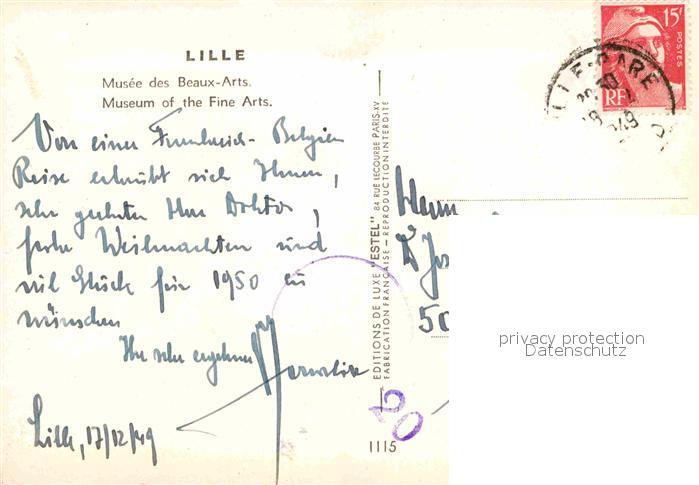 LILLE
Musée des Beaux-Arts.
Museum of the Fine Arts.
Von einer Frankreich- Belgien
Reise erlaubt sich Ihnen,
sehr geehrter Herr Doktor,
frohe Weihnachten und
viel Glück für 1950 zu
wünschen
Ihr sehr ergebener
Lille, 17/12/49
EDITIONS DE LUXE "ESTEL" 84 RUE LECOURBE PARIS-XV
FABRICATION FRANÇAISE — REPRODUCTION INTERDITE
1115
20
15F
POSTES
RF
LILLE-GARE
Herrn
D Jos
50
privacy protection
Datenschutz